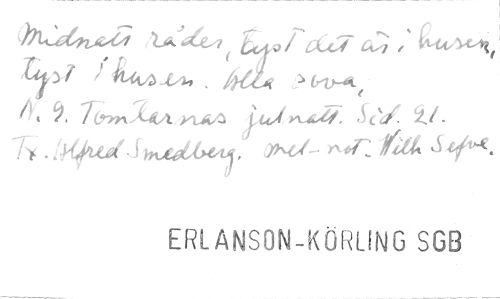 Midnatt råder, tyst det är i husen,
tyst i husen. Alla sova,
N. 9. Tomtarnas julnatt. Sid. 21.
Tx. Alfred Smedberg. mel-not. Vilh Sefve.
ERLANSON-KÖRLING SGB